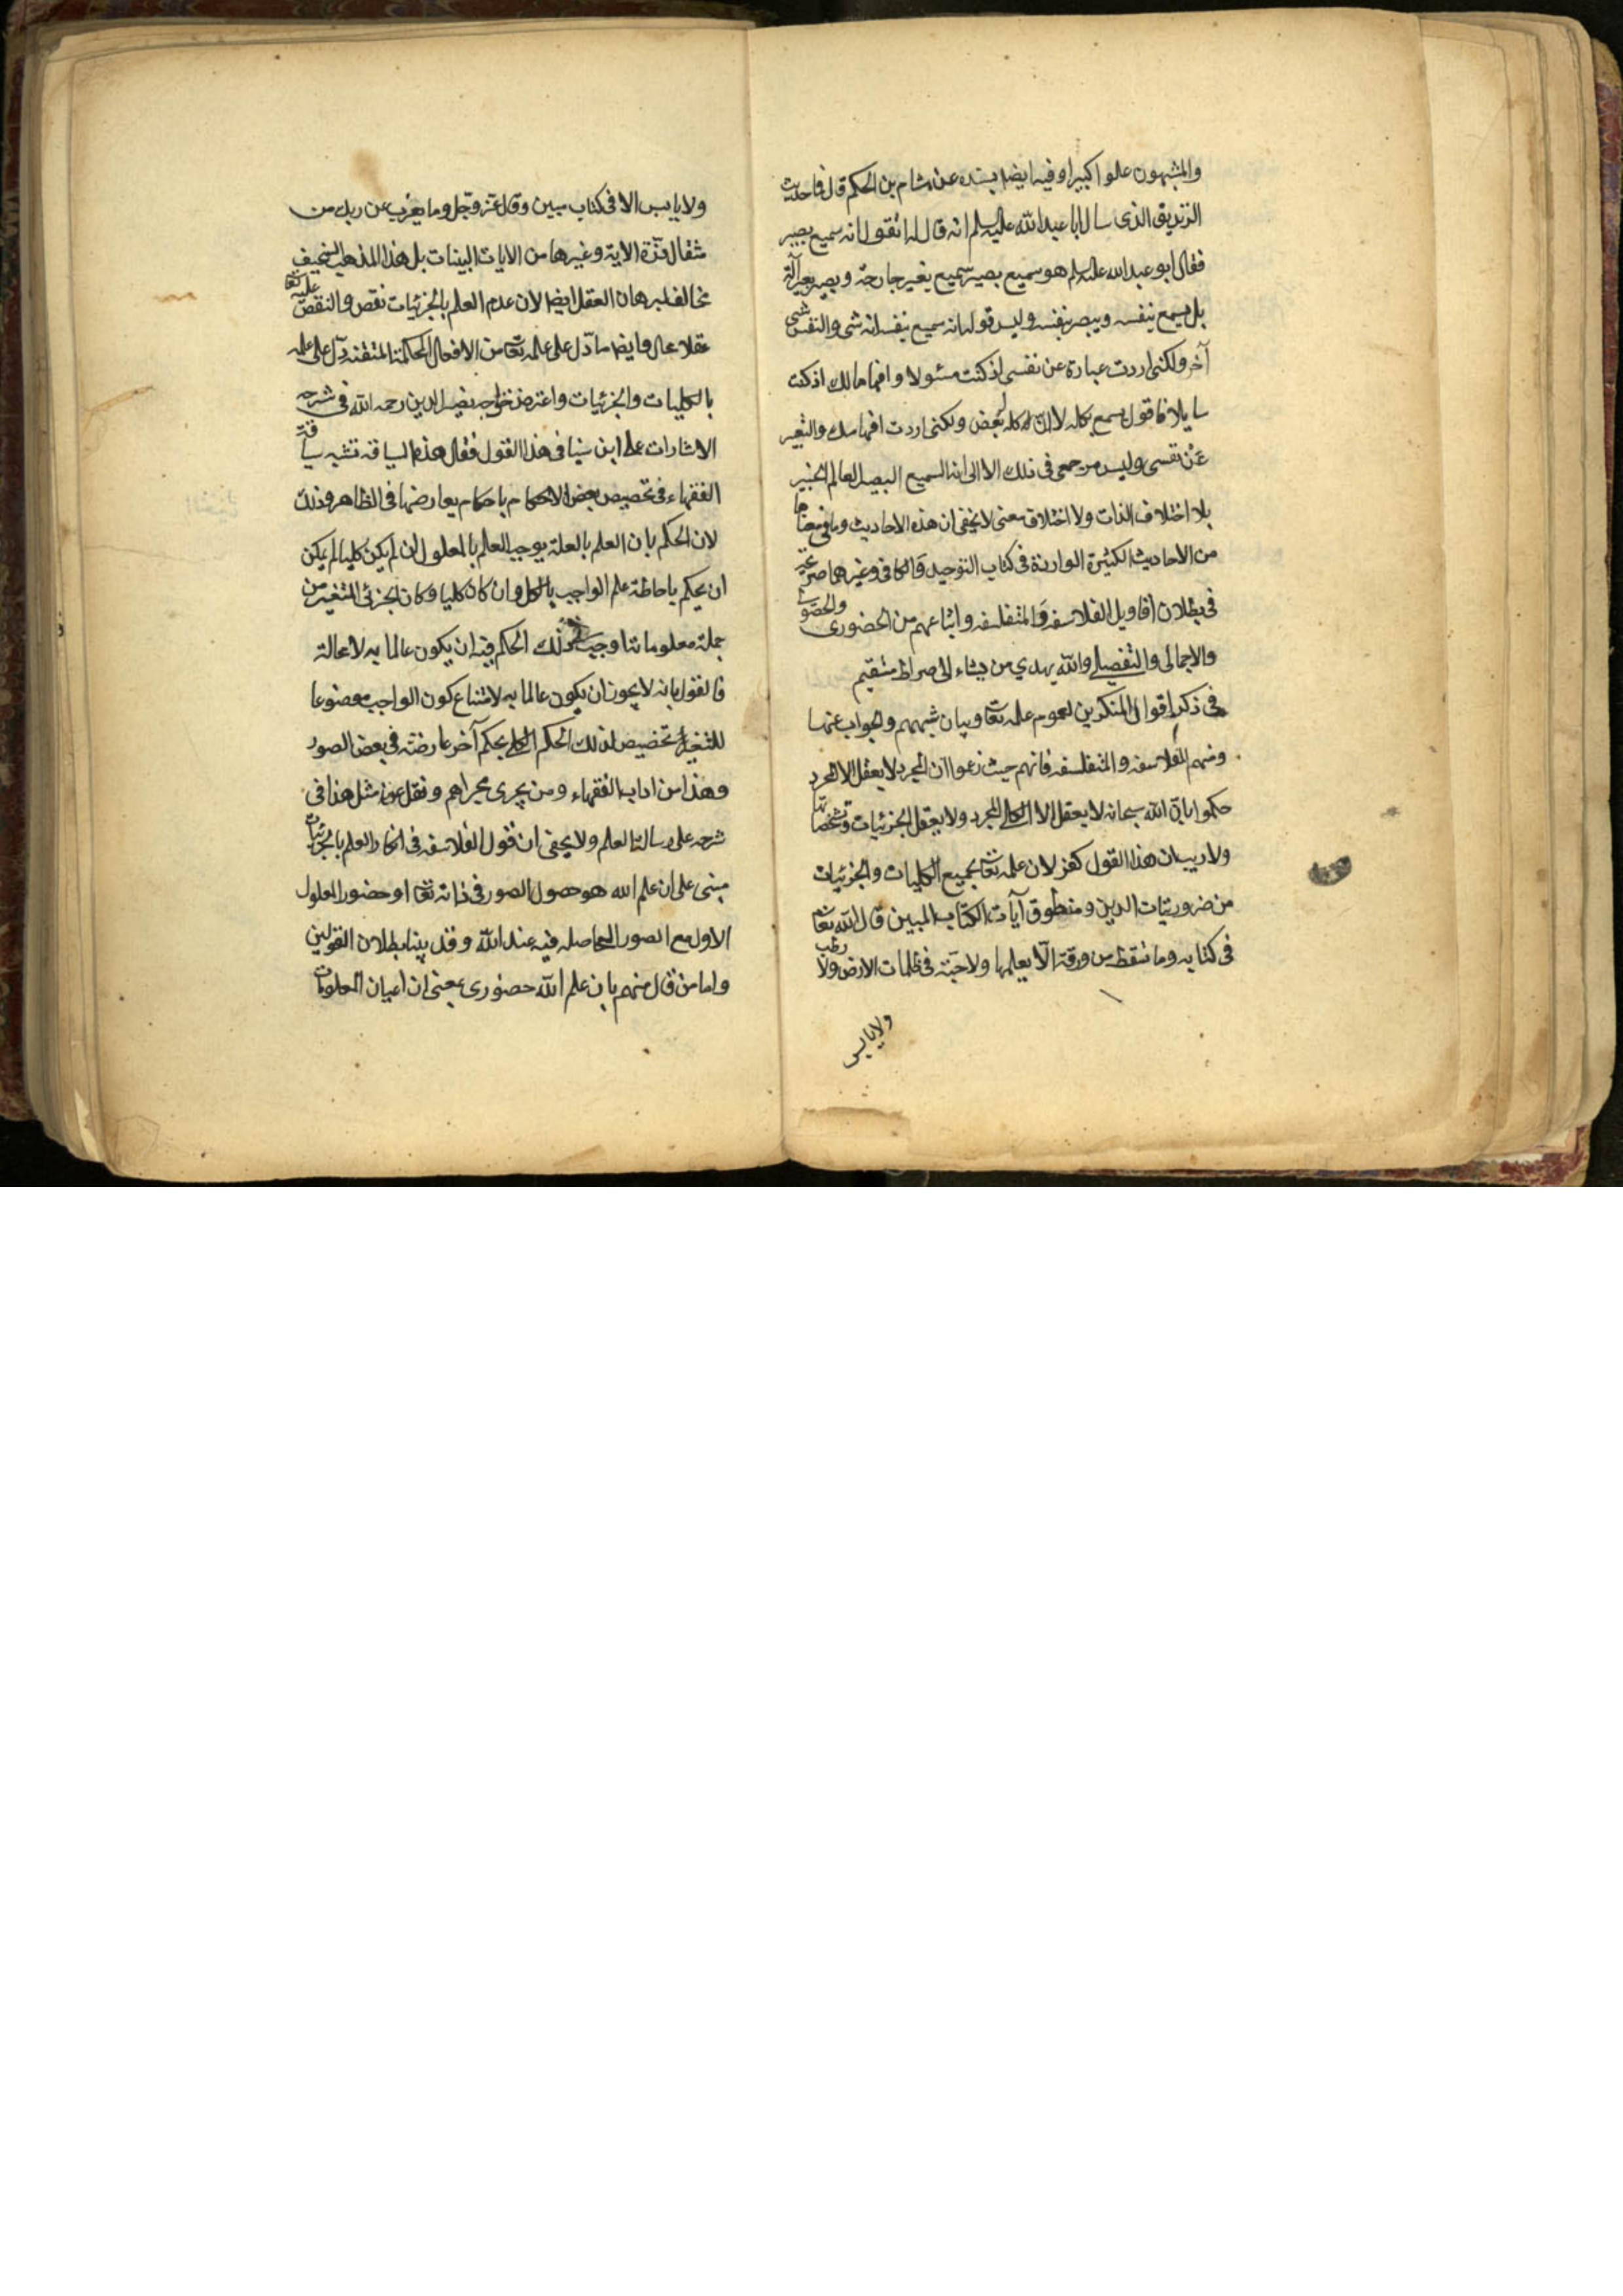 والمشبهون علوا كبيرا وفيه ايضا بسنده عن هشام بن الحكم قال في حديث
الزنديق الذى سال ابا عبد الله عليه السلم انه قال له اتقول انه سميع بصير
فقال ابو عبد الله عليه السلم هو سميع بصير سميع بغير جارحة وبصير بغير آلة
بل يسمع بنفسه ويبصر بنفسه وليس قولى انه سميع بنفسه انه شى والنفس شى
آخر ولكنى اردت عبارة عن نفسى اذ كنت مسئولا وافهاما لك اذ كنت
سايلا فاقول يسمع بكله لا ان كله له بعض ولكنى اردت افهامك والتعبير
عن نفسى وليس مرجعى فى ذلك الا الى انه السميع البصير العالم الخبير
بلا اختلاف الذات ولا اختلاف معنى لا يخفى ان هذه الاحاديث وما فى معناها
من الاحاديث الكثيرة الواردة فى كتاب التوحيد والكافى وغيرهما صريحة
فى بطلان اقاويل الفلاسفه والمتفلسفه واتباعهم من الحضورى والحصولى
والاجمالى والتفصيلى والله يهدي من يشاء الى صراط مستقيم
فى ذكر اقوال المنكرين لعموم علمه تعا وبيان شبههم والجواب عنها
ومنهم الفلاسفه والمتفلسفه فانهم حيث زعموا ان المجرد لا يعقل الا المجرد
حكموا بان الله سبحانه لا يعقل الا الكلى المجرد ولا يعقل الجزئيات وتشخصاتها
ولا ريب ان هذا القول كفر لان علمه تعا بجميع الكليات والجزئيات
من ضروريات الدين ومنطوق آيات الكتاب المبين قال الله تعا
فى كتابه وما تسقط من ورقة الا يعلمها ولا حبة فى ظلمات الارض ولا رطب
ولا يابس
ولا يابس الا فى كتاب مبين وقال عز وجل وما يعزب عن ربك من
مثقال ذرة الاية وغيرها من الايات البينات بل هذا المذهب السخيف
مخالف لبرهان العقل ايضا لان عدم العلم بالجزئيات نقص والنقص عليه تعا
عقلا محال وايضا ما دل على علمه تعا من الافعال المحكمة المتقنة دل على علمه
بالكليات والجزئيات واعترض خواجه نصير الدين رحمه الله فى شرحه
الاشارات على ابن سينا فى هذا القول فقال هذه السياقه تشبه سياقة
الفقهاء فى تخصيص بعض الاحكام باحكام يعارضها فى الظاهر وذلك
لان الحكم بان العلم بالعلة يوجب العلم بالمعلول ان لم يكن كليا لم يكن
ان يحكم باحاطة علم الواجب بالكل وان كان كليا وكان الجزئى المتغير من
جملة معلوماتنا وجب ذلك الحكم فيه ان يكون عالما به لا محالة
فالقول بانه لا يجوز ان يكون عالما به لامتناع كون الواجب موضوعا
للتغير تخصيص لذلك الحكم الكلى بحكم آخر عارضته فى بعض الصور
وهذا من اداب الفقهاء ومن يجرى مجراهم ونقل عنه مثل هذا فى
شرحه على رسالة العلم ولا يخفى ان قول الفلاسفه فى انكار العلم بالجزئيات
مبنى على ان علم الله هو حصول الصور فى ذاته تعا او حضور المعلول
الاول مع الصور الحاصله فيه عند الله وقد بينا بطلان القولين
واما من قال منهم بان علم الله حضورى بمعنى ان اعيان المعلومات